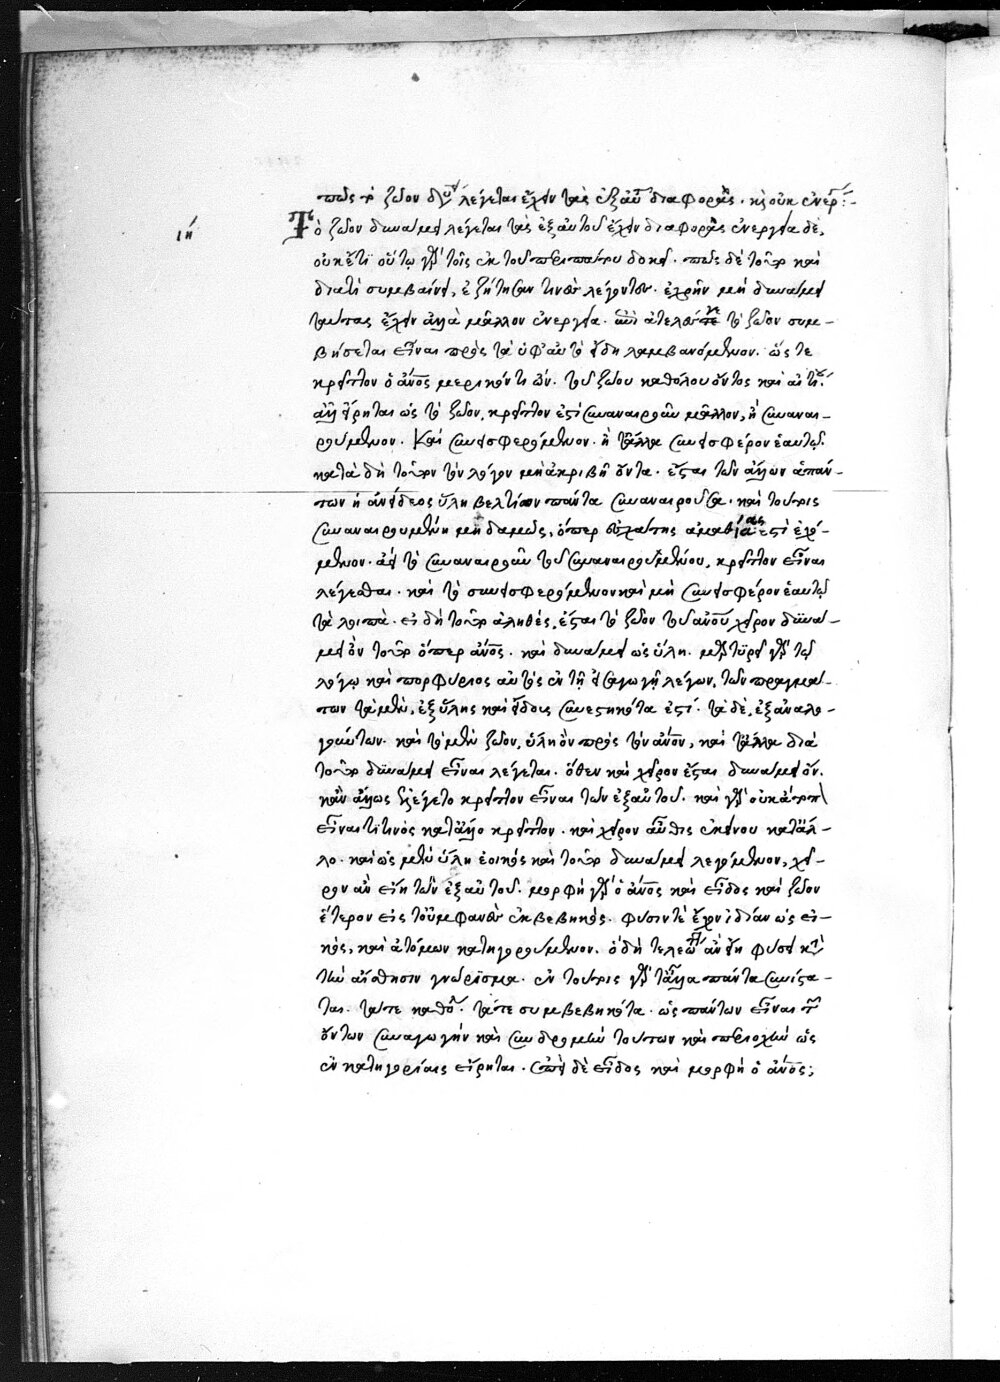 πῶς τὸ ζῷον δυνάμει λέγεται ἔχειν τὰς ἐξ αὐτοῦ διαφοράς. καὶ οὐκ ἐνεργ:
ιή
Τὸ ζῷον δυνάμει λέγεται τὰς ἐξ αὐτοῦ ἔχειν διαφορὰς ἐνεργεία δὲ,
οὐκέτι οὕτω γὰρ τοῖς ἐκ τοῦ περιπάτου δοκεῖ. πῶς δὲ τοῦτο καὶ
διατί συμβαίνει, ἐζήτησάν τινες λέγοντες. ἐχρῆν μὴ δυνάμει
ταύτας ἔχειν ἀλλὰ μᾶλλον ἐνεργεία. ἀτελὲς τὸ ζῷον συμ-
βήσεται εἶναι πρὸς τὰ ὑφ' αὑτὸ εἴδη λαμβανόμενον. ὥς τε
κρεῖττον ὁ ἄνος μερικόν τι ὤν. τοῦ ζώου καθόλου ὄντος καὶ
ἀλλ' εἴρηται ὡς τὸ ζῷον, κρεῖττον ἐστὶ συναναιροῦν μᾶλλον, ἢ συναναι-
ρούμενον. Καὶ συνεισφερόμενον. ἢ τἄλλα συνεισφέρον ἑαυτῷ.
κατὰ δὴ τοῦτον τὸν λόγον μὴ ἀκριβῆ ὄντα. ἔσται τῶν ἄλλων ἁπάν-
των ἡ ἀνείδεος ὕλη βελτίων πάντα συναναιροῦσα. καὶ τούτοις
συναναιρουμένη μηδαμῶς, ὅπερ ἐσχάτης ἀμαθίας ἐστὶ ἐχό-
μενον. ἀεὶ τὸ συναναιροῦν τοῦ συναναιρουμένου, κρεῖττον εἶναι
λέγεσθαι. καὶ τὸ συνεισφερόμενον καὶ μὴ συνεισφέρον ἑαυτῷ
τὰ λοιπά. εἰ δὴ τοῦτο ἀληθές, ἔσται τὸ ζῷον τοῦ ἀνου χεῖρον δυνά-
μει ὂν τοῦτο ὅπερ ἄνος. καὶ δυνάμει ὡς ὕλη. γὰρ τῷ
λόγῳ καὶ πορφύριος αὐτὸς ἐν τῇ εἰσαγωγῇ λέγων, τῶν πραγμά-
των τὰ μὲν, ἐξ ὕλης καὶ εἴδους συνεστηκότα ἐστί. τὰ δὲ, ἐξ ἀναλο-
γούντων. καὶ τὸ μὲν ζῷον, ὕλη ὂν πρὸς τὸν ἄνον, καὶ τἄλλα διὰ
τοῦτο δυνάμει εἶναι λέγεται. ὅθεν καὶ χεῖρον ἔσται δυνάμει ὄν.
κἂν ἄλλως ἐλέγετο κρεῖττον εἶναι τῶν ἐξ αὐτοῦ. καὶ γὰρ οὐκ ἄτοπ
εἶναι τὶ τινὸς κατ' ἄλλο κρεῖττον. καὶ χεῖρον αὖθις ἐκείνου κατ' ἄλ-
λο. καὶ ὡς μὲν ὕλη ἐοικὸς καὶ τοῦτο δυνάμει λεγόμενον, χεῖ-
ρον ἂν εἴη τῶν ἐξ αὐτοῦ. μορφὴ γὰρ ὁ ἄνος καὶ εἶδος καὶ ζῷον
ἕτερον εἰς τοὐμφανὲς ἐκβεβηκός. φύσιν τὲ ἔχον ἰδίαν ὡς εἰ-
κὸς, καὶ ἀτόμων κατηγορούμενον. ὁ δὴ τελεῶν ἂν εἴη φύσει κατὰ
τὴν αἴσθησιν γνώρισμα. ἐν τούτοις γὰρ τἆλλα πάντα συνίστα-
ται. τά τε καθόλου. τά τε συμβεβηκότα. ὡς πάντων εἶναι τῶν
ὄντων συναγωγὴν καὶ συνδρομὴν τούτων καὶ περιοχὴν ὡς
ἐν κατηγορίαις εἴρηται. ἐπεὶ δὲ εἶδος καὶ μορφὴ ὁ ἄνος;